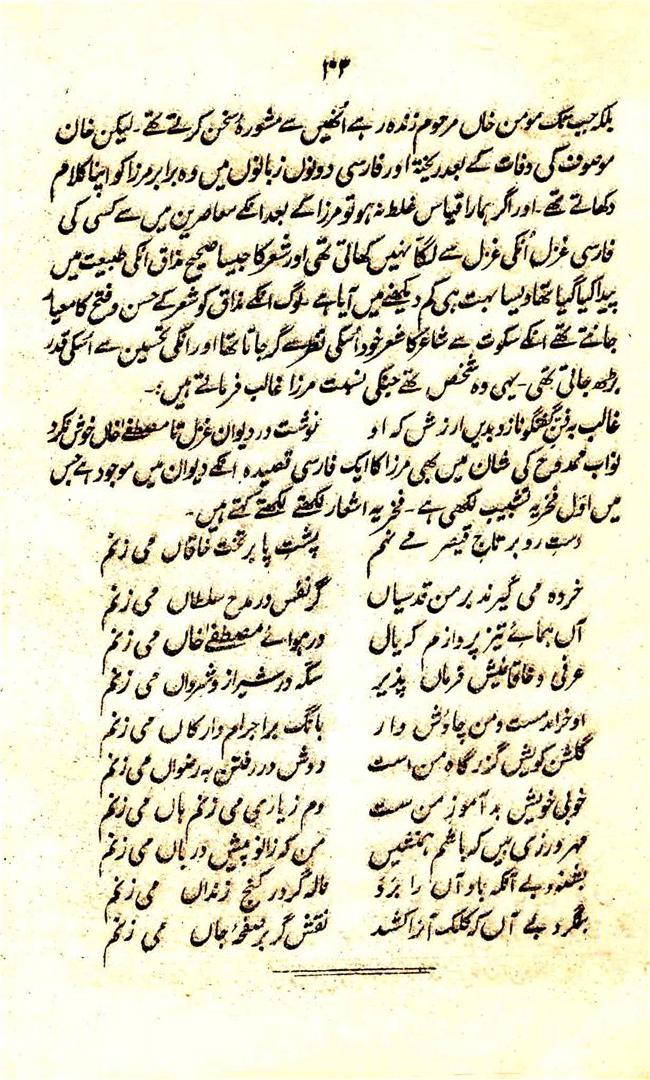 ۴۳
بلکہ جب تک مومن خاں مرحوم زندہ رہے اُنھیں سے مشورۂ سخن کرتے تھے۔ لیکن خان
موصوف کی وفات کے بعد ریختہ اور فارسی دونوں زبانوں میں وہ برابر مرزا کو اپنا کلام
دکھاتے تھے۔ اور اگر ہمارا قیاس غلط نہ ہو تو مرزا کے بعد انکے معاصرین میں سے کسی کی
فارسی غزل اُنکی غزل سے لگّا نہیں کھاتی تھی اور شعر کا جیسا صحیح مذاق انکی طبیعت میں
پیدا کیا گیا تھا ویسا بہت ہی کم دیکھنے میں آیا ہے لوگ انکے مذاق کو شعر کے حسن و قبح کا معیار
جانتے تھے انکے سکوت سے شاعر کا شعر خود اُسکی نظر سے گر جاتا تھا اور انکی تحسین سے اُسکی قدر
بڑھ جاتی تھی۔ یہی وہ شخص تھے جنکی نسبت مرزا غالب فرماتے ہیں:۔
غالب بہ فن گفتگو نازد بدیں ارزش کہ او نوشت در دیوان غزل تا مصطفےٰ خاں خوش نکرد
نواب ممدوح کی شان میں بھی مرزا کا ایک فارسی قصیدہ انکے دیوان میں موجود ہے جس
میں اوّل فخریہ تشبیب لکھی ہے۔ فخریہ اشعار لکھتے لکھتے کہتے ہیں۔
دست رد بر تاج قیصر مے نہم پشتِ پا بر تخت خاقاں می زنم
خردہ می گیرند بر من قدسیاں گر نفس در مدح سلطاں می زنم
آں ہمائے تیز پروازم کہ بال در ہوائے مصطفےٰ خاں می زنم
عرفی و خاقانیش فرماں پذیر سکّہ در شیراز و شرواں می زنم
او خرامد مست و من چاؤش وار بانگ بر اجرام و ارکاں می زنم
گلشن کویش گزرگاہ من است دوش در رفتن بہ رضواں می زنم
خوبی خویش بد آموز من ست دم ز یاری می زنم ہاں می زنم
مہر ورزی بیں کہ باشم ہمنشیں من کہ زانو پیش درباں می زنم
بشنود بے آنکہ باد آں را برد نالہ گر در کنج زنداں می زنم
بنگرد بے آں کہ کلک آنرا کشد نقش گر بر صفحۂ جاں می زنم